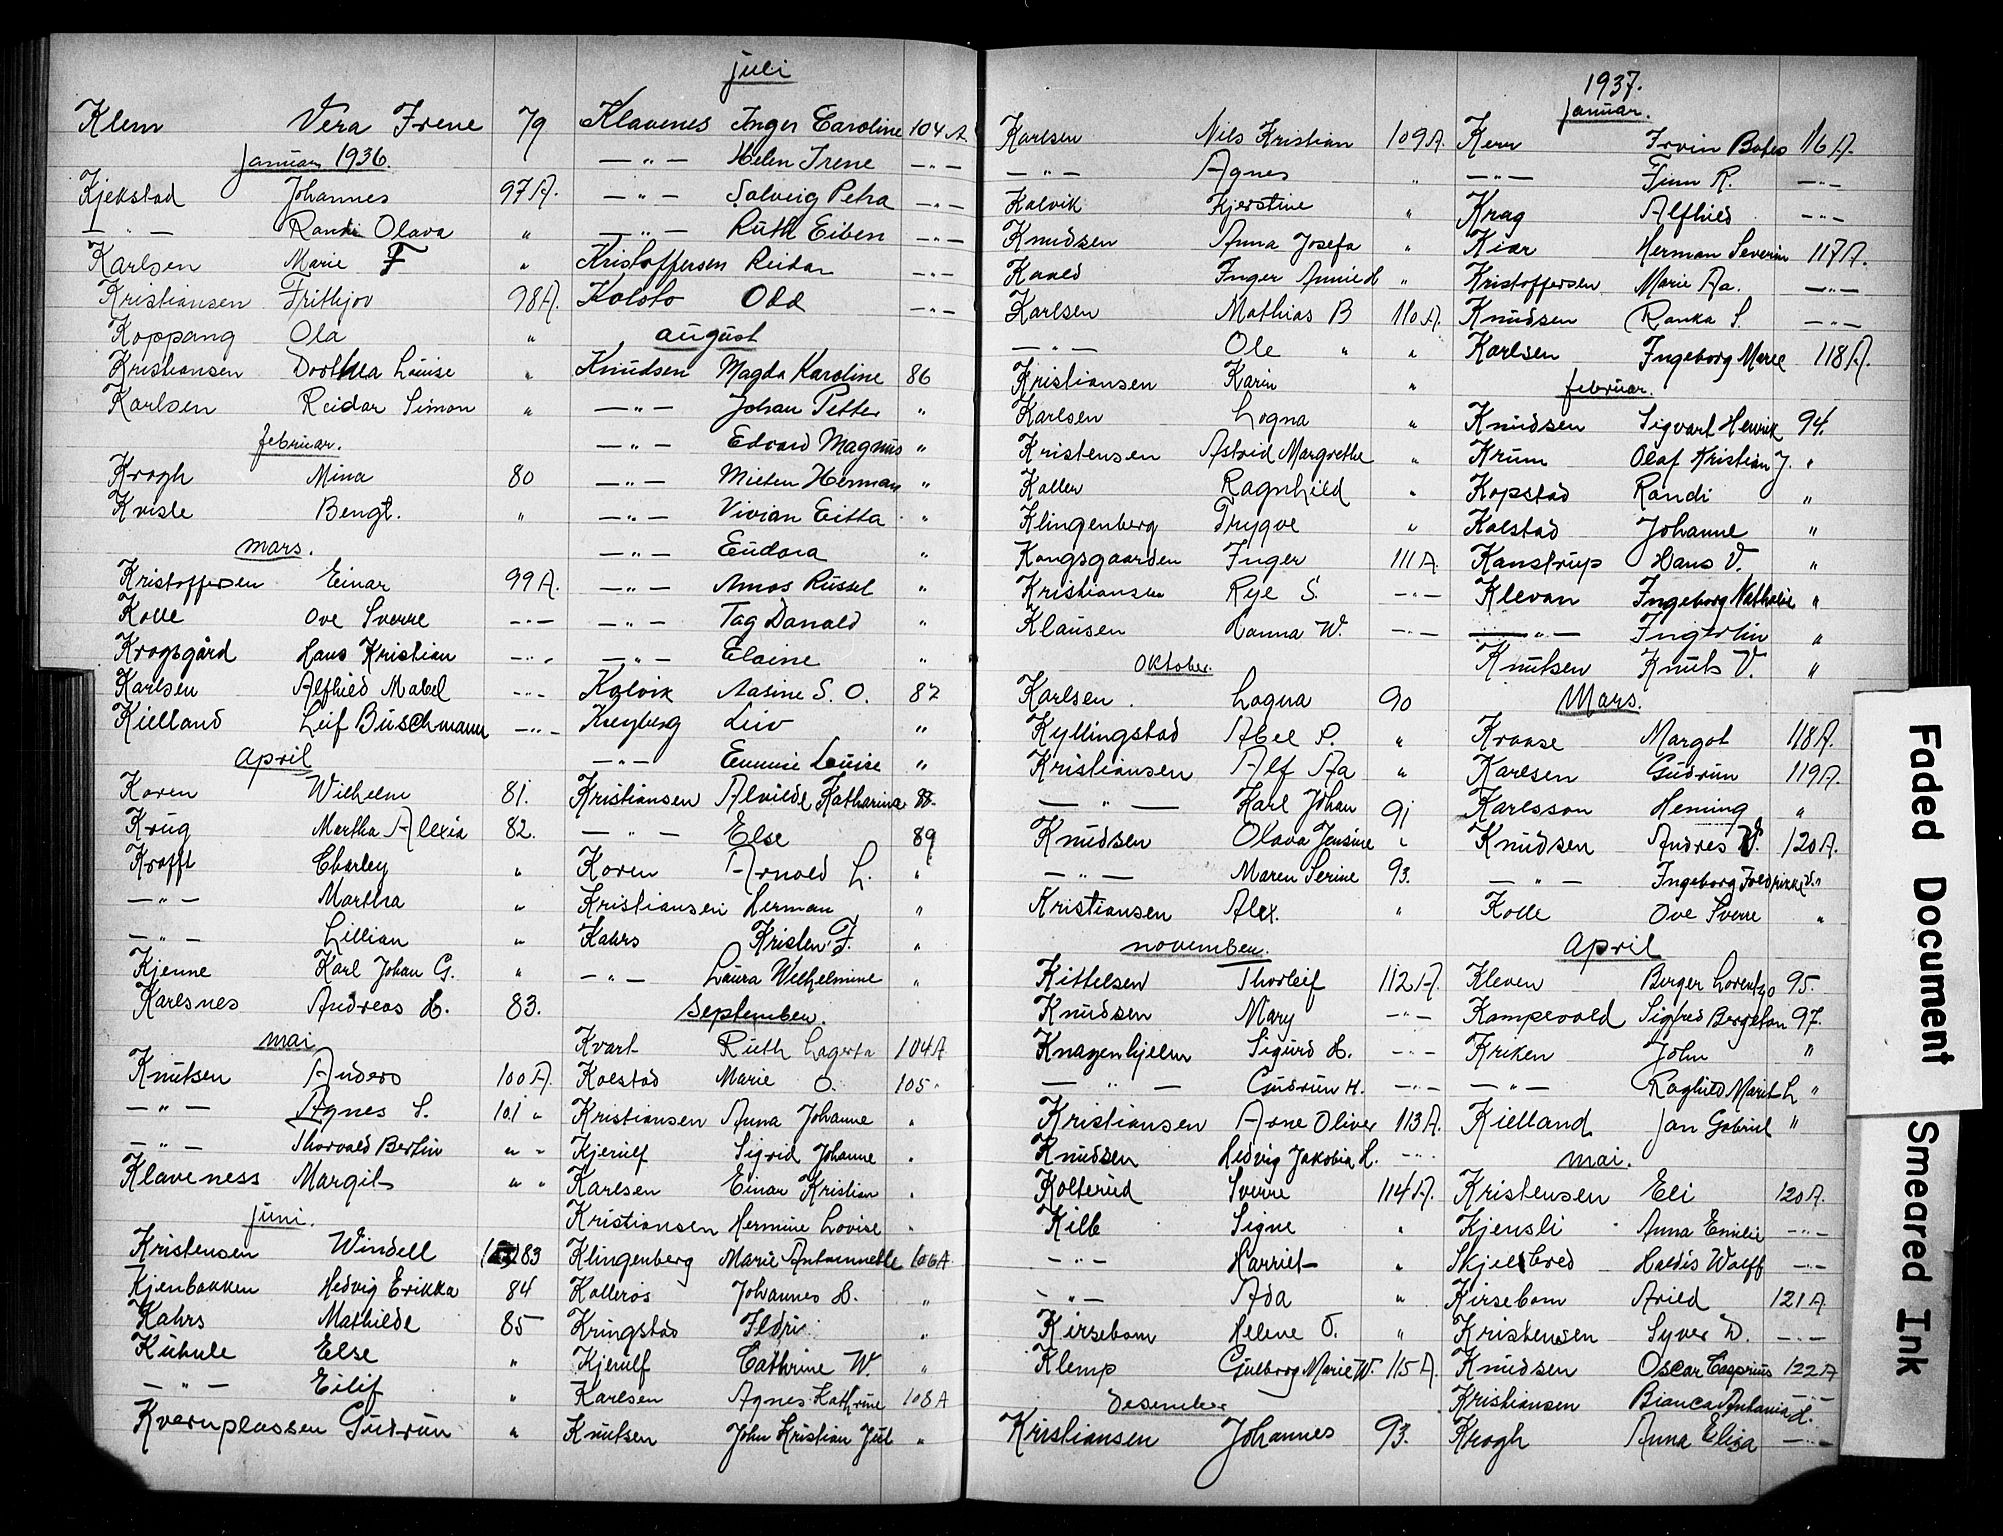 Klem Vera Irene 79
Januar 1936.
Kjekstad Johannes 97A.
— " — Randi Olava "
Karlsen Marie F "
Kristiansen Frithjov 98A.
Koppang Ola "
Kristiansen Dorthea Louise "
Karlsen Reidar Simon "
februar.
Krogh Mina 80
Kvisle Bengt. "
mars.
Kristoffersen Einar 99A.
Kolle Ove Sverre — " —
Krogsgård Hans Kristian — " —
Karlsen Alfhild Mabel — " —
Kielland Leif Buschmann — " —
April
Koren Wilhelm 81.
Krug Martha Alexia 82.
Krafft Charley "
— " — Martha "
— " — Lillian "
Kjenne Karl Johan G. "
Karlsnes Andreas H. 83.
mai
Knutsen Anders 100A.
— " — Agnes S. 101 "
— " — Thorvald Bertin " "
Klaveness Margit " "
juni.
Kristensen Windell 83
Kjenbakken Hedvig Erikka 84
Kahrs Mathilde 85
Kuhnle Else "
— " — Eilif "
Kvernplassen Gudrun "
juli
Klavenes Inger Caroline 104A
— " — Helen Irene — " —
— " — Solveig Petra — " —
— " — Ruth Eiben — " —
Kristoffersen Reidar — " —
Kolsto Odd — " —
august
Knudsen Magda Karoline 86
— " — Johan Petter "
— " — Edvard Magnus "
— " — Milton Herman "
— " — Vivian Eitta "
— " — Eudora "
— " — Amos Russel "
— " — Tag Donald "
— " — Elaine "
Kalvik Aasine S. O. 87
Kreyberg Liv "
— " — Emmie Louise "
Kristiansen Alvilde Katharina 88.
— " — Else 89
Koren Arnold L. "
Kristiansen Herman "
Kahrs Kristen F. "
— " — Laura Wilhelmine "
September.
Kvart Ruth Lagerta 104A
Kolstad Marie O. 105 "
Kristiansen Anna Johanne "
Kjerulf Sigrid Johanne "
Karlsen Einar Kristian "
Kristiansen Hermine Lovise "
Klingenberg Marie Antoinnette 106A
Kolleros Johannes H. "
Kringstad Ildri "
Kjerulf Cathrine W. "
Karlsen Agnes Kathrine 108A
Knutsen John Kristian Jul "
Karlsen Nils Kristian 109A.
— " — Agnes "
Kalvik Kjerstine "
Knudsen Anna Josefa "
Kvald Inger Annie H "
Karlsen Mathias B 110A.
— " — Ole " "
Kristiansen Karin "
Karlsen Logna "
Kristensen Astrid Margrethe "
Koller Ragnhild "
Klingenberg Trygve "
Kongsgaarden Inger 111A.
Kristiansen Rye S. — " —
Klausen Hanna W. — " —
Oktober.
Karlsen. Logna 90
Kyllingstad Abel S. "
Kristiansen Alf Aa "
— " — Karl Johan 91
Knudsen Olava Jensine "
— " — Maren Serine 93.
Kristiansen Alex. "
november.
Kittelsen Thorleif 112A.
Knudsen Mary — " —
Knagenhjelm Sigurd H. — " —
— " — Gudrun H. — " —
Kristiansen Arne Oliver 113A.
Knudsen Hedvig Jakobia H. — " —
Kolterud Sverre 114A.
Kilb Signe "
— " — Harriet "
— " — Ada "
Kirsebom Helene O. "
Klemp Gulborg Marie W. 115A.
Desember
Kristiansen Johannes 93.
1937.
januar.
Kerr Irvin Bates 116A.
— " — Finn R. — " —
Krag Alfhild — " —
Kiær Herman Severin 117A.
Kristoffersen Marie Aa. — " —
Knudsen Ranka S. — " —
Karlsen Ingeborg Marie 118A.
februar.
Knudsen Sigvart Henrik 94.
Krum Olaf Kristian J. "
Kopstad Randi "
Kolstad Johanne "
Kanstrup Hans V. "
Klevan Ingeborg Nathalie "
— " — Ingerlin "
Knutsen Knut V. "
Mars.
Kraase Margot 118A.
Karlsen Gudrun 119A.
Karlsson Heming "
Knudsen Andres 120A.
— " — Ingeborg Fredrikke V. "
Kolle Ove Sverre "
April
Kleven Berger Lorentzo 95.
Kampevold Sigfred Bergeton 97.
Kriken John "
— " — Raghild Marit L "
Kielland Jan Gabriel "
mai.
Kristensen Eli 120A.
Kjensli Anna Emilie — " —
Skjelbred Haldis Wolff — " —
Kirsebom Arild 121A
Kristensen Syver D. — " —
Knudsen Oscar Casprius 122A
Kristiansen Bianca Antonia H. — " —
Krogh Anna Elisa — " —
Faded Document
Smeared Ink